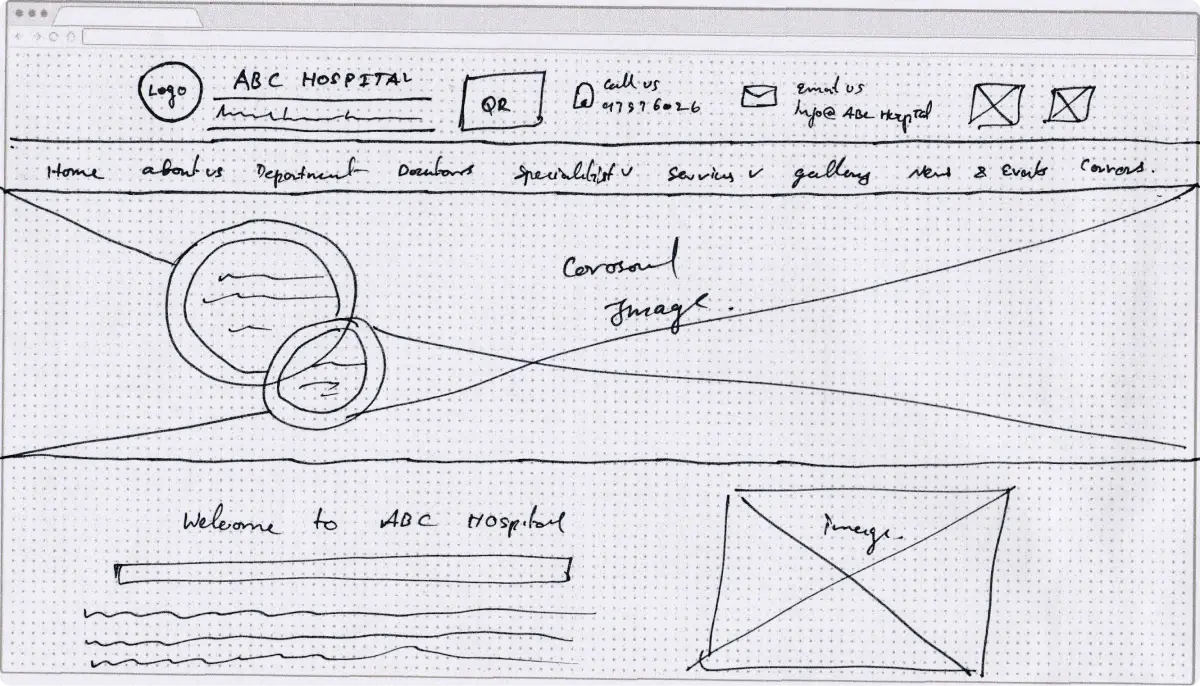 Logo
ABC HOSPITAL
QR
Call us
97976026
email us
Info@ ABC Hospital
Home
about us
Department
Doctors
Specialist v
Services v
gallery
News & Events
Careers.
Carosoul
Image.
Welcome to ABC Hospital
Image.